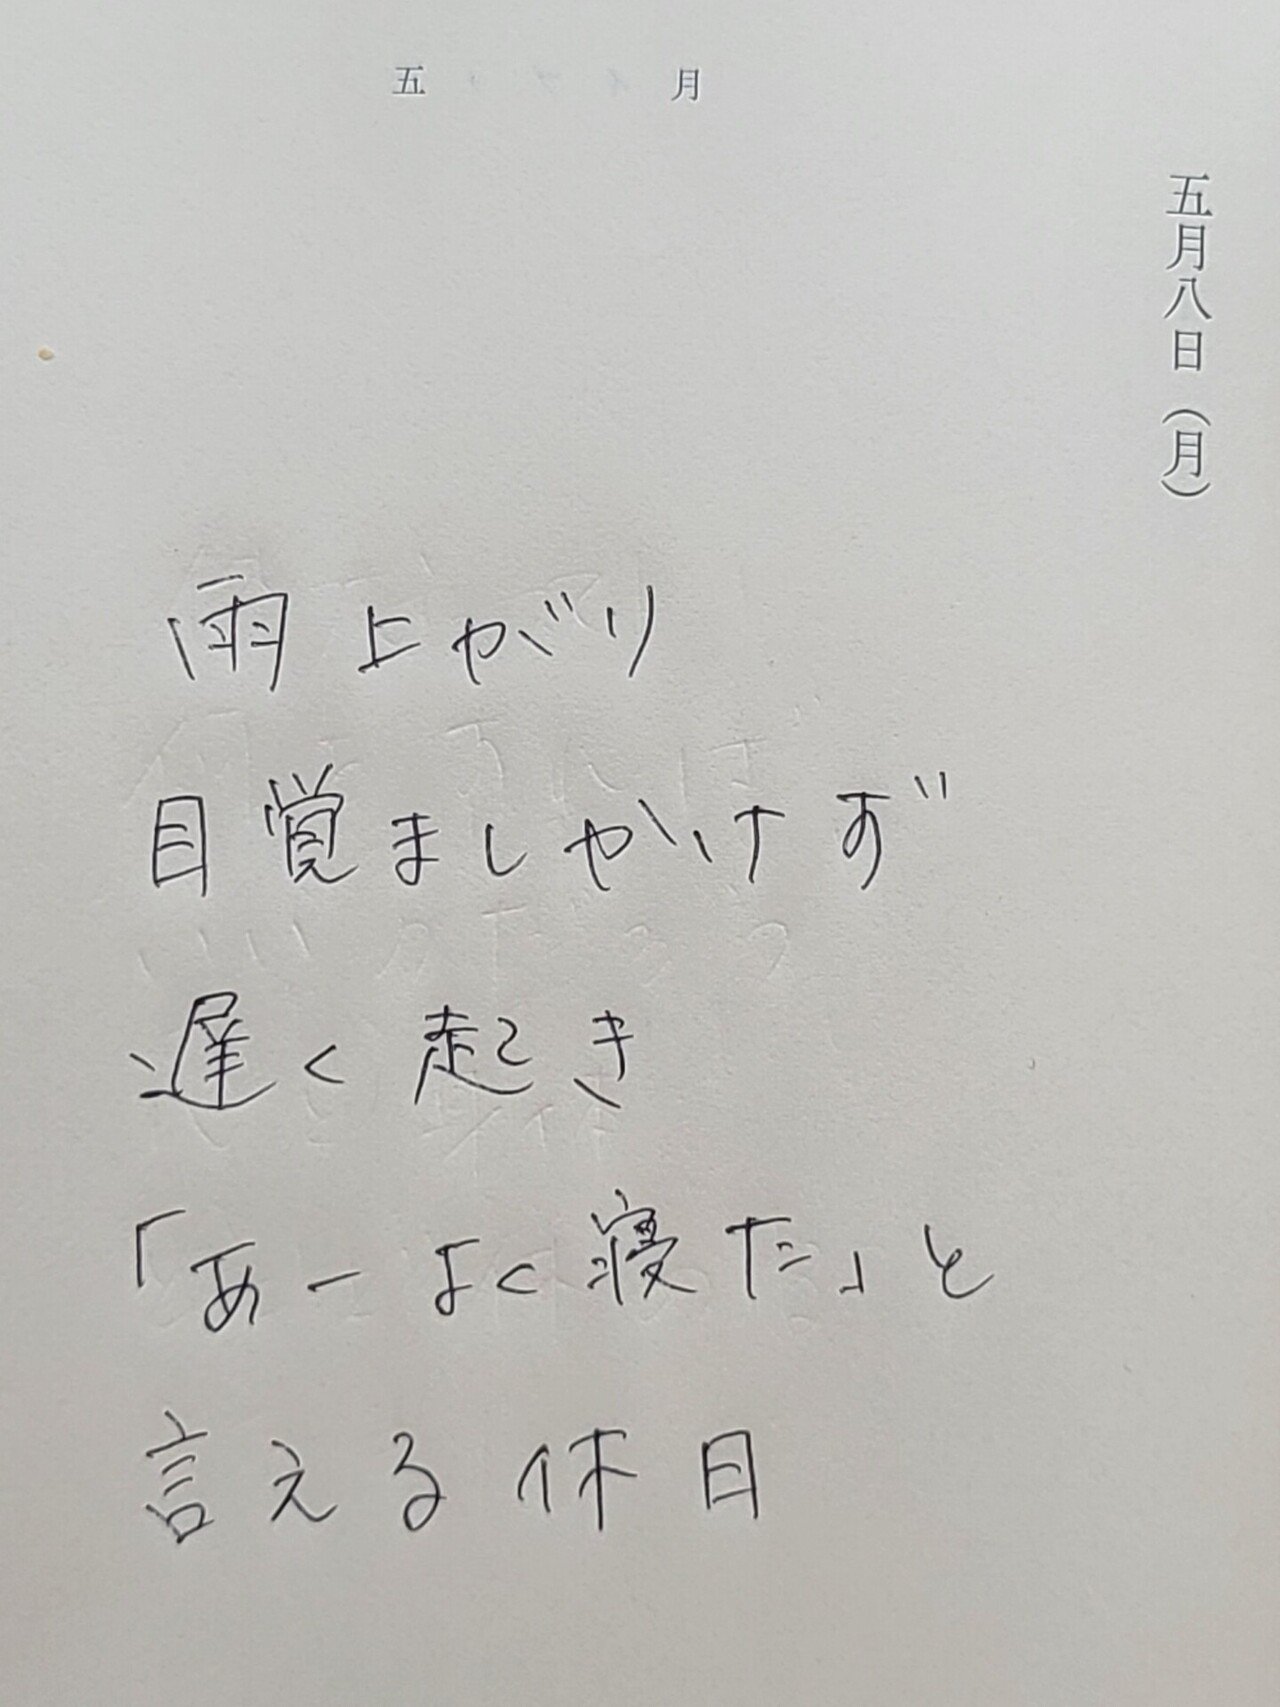 五月
五月八日（月）
雨上がり
目覚ましかけず
遅く起き
「あーよく寝た」と
言える休日